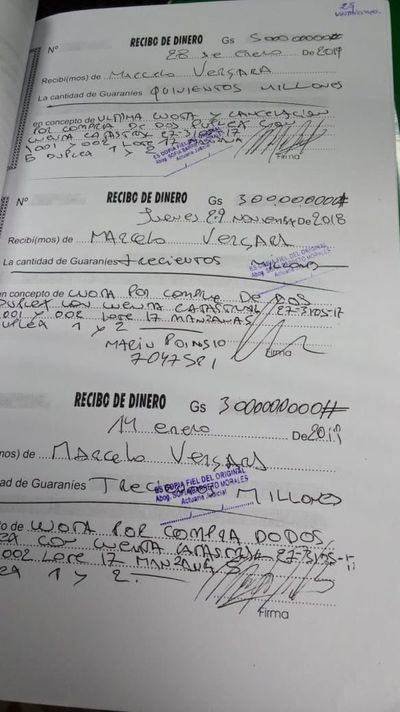 29
Nº RECIBO DE DINERO Gs 500000000#
28 de enero De 2019
Recibi(mos) de MARCELO VERGARA
La cantidad de Guaraníes QUINIENTOS MILLONES
en concepto de ULTIMA CUOTA Y CANCELACION
POR COMPRA DE DOS DUPLEX CON
CUENTA CATASTRAL 27-3105-17
001 Y 002 LOTE 17 MANZANA
5 DUPLEX 1 Y 2
ES COPIA FIEL DEL ORIGINAL
Actuaria Judicial
Firma
Nº RECIBO DE DINERO Gs 300,000,000#
Jueves 29 NOVIEMBRE De 2018
Recibi(mos) de MARCELO VERGARA
La cantidad de Guaraníes trecientos MILLONES
ES COPIA FIEL DEL ORIGINAL
en concepto de CUOTA POR COMPRA DE DOS
DUPLEX CON CUENTA CATASTRAL 27-3105-17
001 Y 002 LOTE 17 MANZANA 5
DUPLEX 1 Y 2
MARIN
Firma
RECIBO DE DINERO Gs 300000000#
14 enero De 201
mos) de MARCELO VERGARA
ad de Guaraníes TRECIENTOS MILLONES
ES COPIA FIEL DEL ORIGINAL
Abog. SOFIA BARRETO MORALES
Actuaria Judicial
to de CUOTA POR COMPRA DO DOS
CON CUENTA CATASTRAL 27-3105-
002 LOTE 17 MANZANA 5
1 Y 2.
Firma